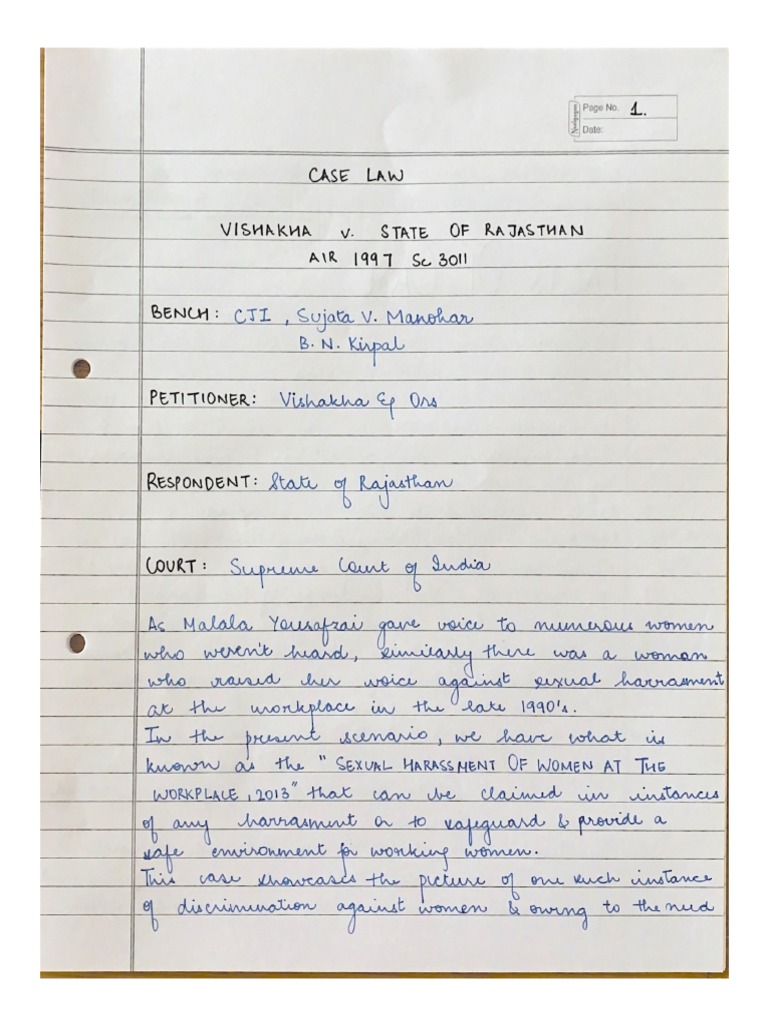 Page No. 1.
Date:
CASE LAW
VISHAKHA v. STATE OF RAJASTHAN
AIR 1997 Sc 3011
BENCH: CJI, Sujata V. Manohar
B. N. Kirpal
PETITIONER: Vishakha & Ors
RESPONDENT: State of Rajasthan
COURT: Supreme Court of India
As Malala Yousafzai gave voice to numerous women
who weren't heard, similarly there was a woman
who raised her voice against sexual harrasment
at the workplace in the late 1990's.
In the present scenario, we have what is
known as the "SEXUAL HARASSMENT OF WOMEN AT THE
WORKPLACE, 2013" that can be claimed in instances
of any harrasment or to safeguard & provide a
safe environment for working women.
This case showcases the picture of one such instance
of discrimination against women & owing to the need